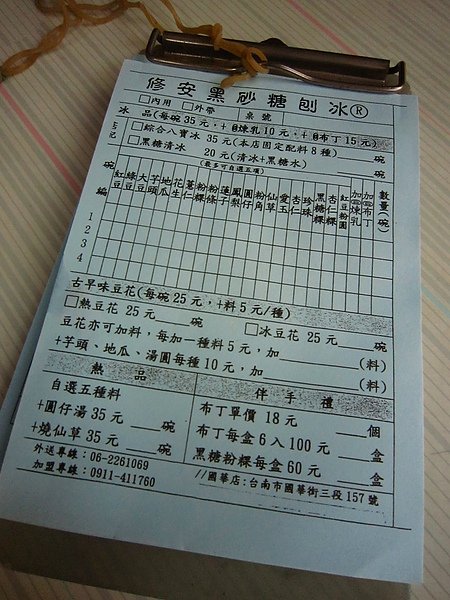 修安黑砂糖刨冰®
□內用 □外帶 桌號
冰 品(每碗35元,+煉乳10元,+布丁15元)
□綜合八寶冰 35元(本店固定配料8種) 碗
□黑糖清冰 20元(清冰+黑糖水) 碗
(最多可自選五項)
碗 紅豆 綠豆 大豆 芋頭 地瓜 花生 薏仁 粉粿 粉條 蓮子 鳳梨 圓仔 粉角 仙草 愛玉 杏仁 珍珠 黑糖粿 杏仁粿 紅豆粉圓 加煉乳 加布丁 數量(碗)
編
1
2
3
4
古早味豆花(每碗25元,+料5元/種)
□熱豆花 25元____碗 □冰豆花 25元____碗
豆花亦可加料,每加一種料5元,加________(料)
+芋頭、地瓜、湯圓每種10元,加________(料)
熱 品 伴 手 禮
自選五種料 布丁單價 18元 ____個
+圓仔湯35元____碗 布丁每盒6入100元 ____盒
+燒仙草35元____碗 黑糖粉粿每盒60元 ____盒
外送專線:06-2261069
加盟專線:0911-411760 //國華店:台南市國華街三段157號